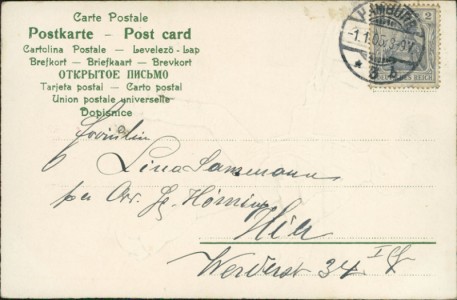 Carte Postale
Postkarte - Post card
Cartolina Postale — Levelező - Lap
Brefkort — Briefkaart — Brevkort
ОТКРЫТОЕ ПИСЬМО
Tarjeta postal — Carto postal
Union postale universelle
Dopisnice
HAMBURG
-1.1.05. 8-9V.
* 8 b
2
DEUTSCHES REICH
Fräulein
Lina
Hier
Werderst 34